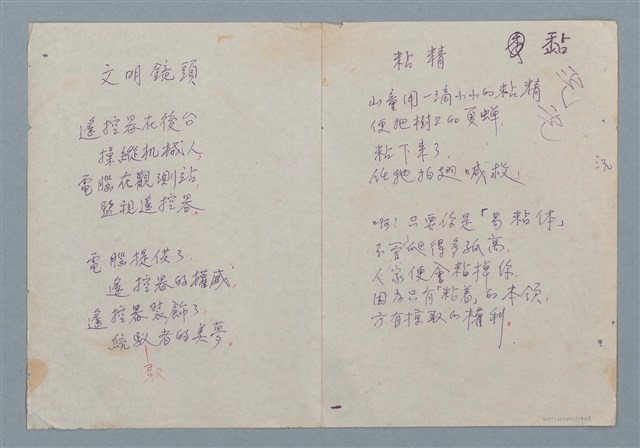 文明鏡頭
遙控器在後台
操縱机械人,
電腦在觀測站,
監視遙控器。
電腦提供了
遙控器的權威,
遙控器裝飾了
統馭者的美夢。
馭
粘精
黏
山童用一滴小小的粘精
便把樹上的夏蟬
粘下来了,
任牠拍翅喊救!
啊!只要你是「易粘体」
不管爬得多孤高,
人家便會粘掉你
因为只有「粘着」的本領,
方有掠取的權利。